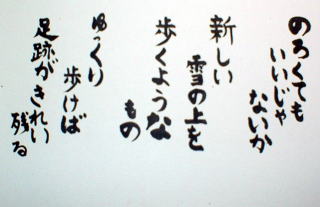 のろくても
いいじゃ
ないか
新しい
雪の上を
歩くような
もの
ゆっくり
歩けば
足跡がきれい
残る